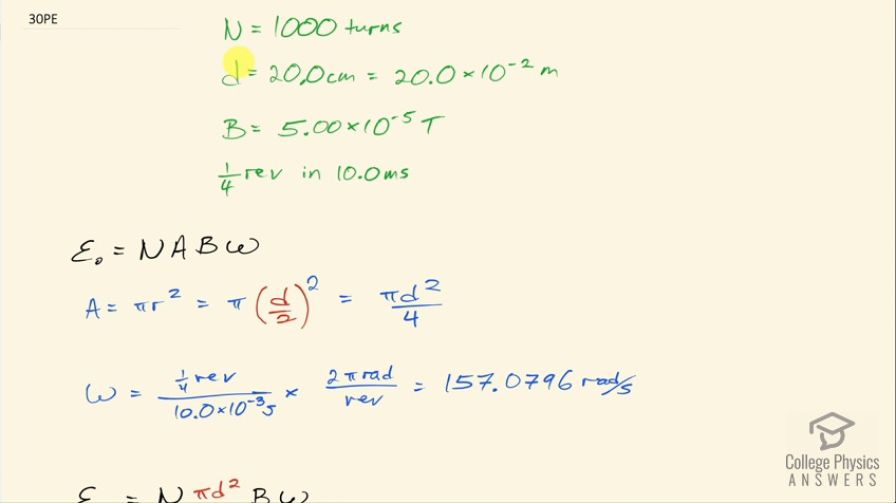 30PE
N = 1000 turns
d = 20.0cm = 20.0 × 10⁻² m
B = 5.00×10⁻⁵ T
1/4 rev in 10.0ms
ℰ₀ = NABω
A = πr² = π(d/2)² = πd²/4
ω = 1/4 rev / 10.0×10⁻³s × 2π rad / rev = 157.0796 rad/s
College Physics
ANSWERS
N πd² B ω